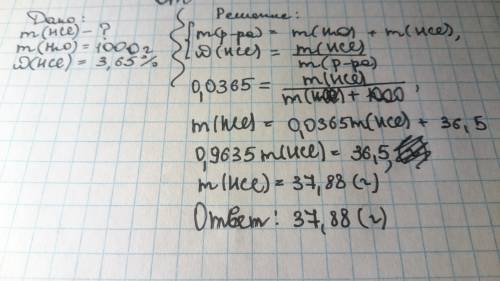 Дано:
m(HCl) - ?
m(H₂O) = 1000 г
ω(HCl) = 3,65%
Решение:
m(р-ра) = m(H₂O) + m(HCl),
ω(HCl) = m(HCl) / m(р-ра)
0,0365 = m(HCl) / m(HCl) + 1000,
m(HCl) = 0,0365m(HCl) + 36,5
0,9635m(HCl) = 36,5,
m(HCl) = 37,88 (г)
Ответ: 37,88 (г)